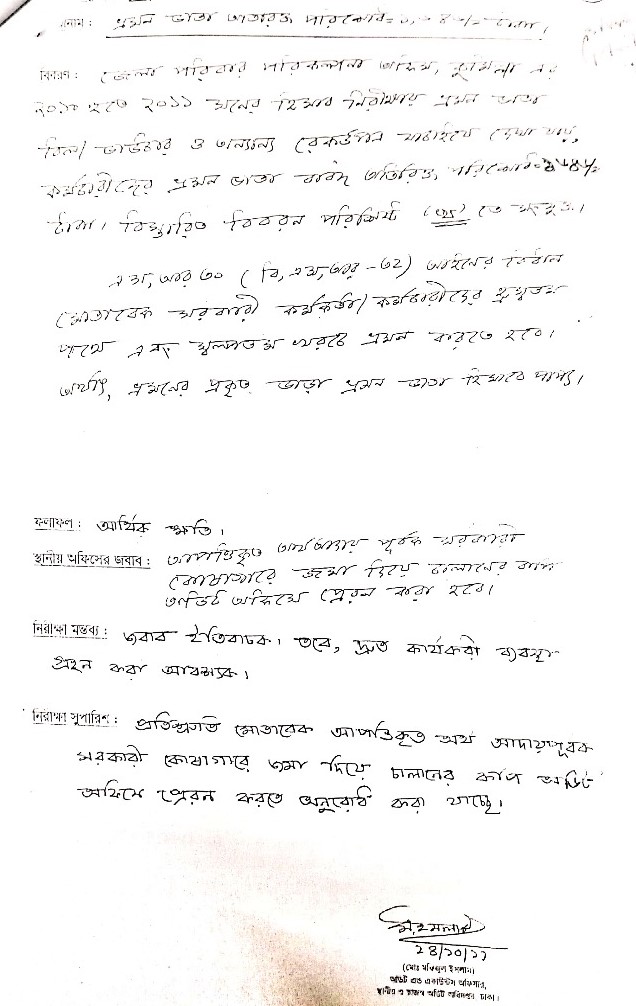 ভ্রমন ভাতা অতিরিক্ত পরিশোধ
বিবরণ: জেলা পরিবার পরিকল্পনা অফিস, কুমিল্লা এর
হতে ২০১১ সনের হিসাব নিরীক্ষায় ভ্রমন ভাতা
বিল/ভাউচার ও অন্যান্য রেকর্ডপত্র যাচাইয়ে দেখা যায়,
কর্মচারীদের ভ্রমন ভাতা বাবদ অতিরিক্ত পরিশোধ
টাকা। বিস্তারিত বিবরন পরিশিষ্ট তে সংযুক্ত।
এস,আর ৩০ ( বি,এস,আর -৩২) আইনের বিধান
মোতাবেক সরকারী কর্মকর্তা/কর্মচারীদের হ্রস্বতম
পথে এবং স্বল্পতম খরচে ভ্রমন করতে হবে।
অর্থাৎ, ভ্রমনের প্রকৃত ভাড়া ভ্রমন ভাতা হিসাবে প্রাপ্য।
ফলাফল: আর্থিক ক্ষতি।
স্থানীয় অফিসের জবাব: আপত্তিকৃত অর্থ আদায় পূর্বক সরকারী
কোষাগারে জমা দিয়ে চালানের কপি
অডিট অফিসে প্রেরন করা হবে।
নিরীক্ষা মন্তব্য: জবাব ইতিবাচক। তবে, দ্রুত কার্যকরী ব্যবস্থা
গ্রহন করা আবশ্যক।
নিরীক্ষা সুপারিশ: প্রতিশ্রুতি মোতাবেক আপত্তিকৃত অর্থ আদায়পূর্বক
সরকারী কোষাগারে জমা দিয়ে চালানের কপি অডিট
অফিসে প্রেরন করতে অনুরোধ করা যাচ্ছে।
২৪/১০/১১
(মোঃ মফিজুল ইসলাম)
অডিট এন্ড একাউন্টস অফিসার,
স্থানীয় ও রাজস্ব অডিট অধিদপ্তর, ঢাকা।